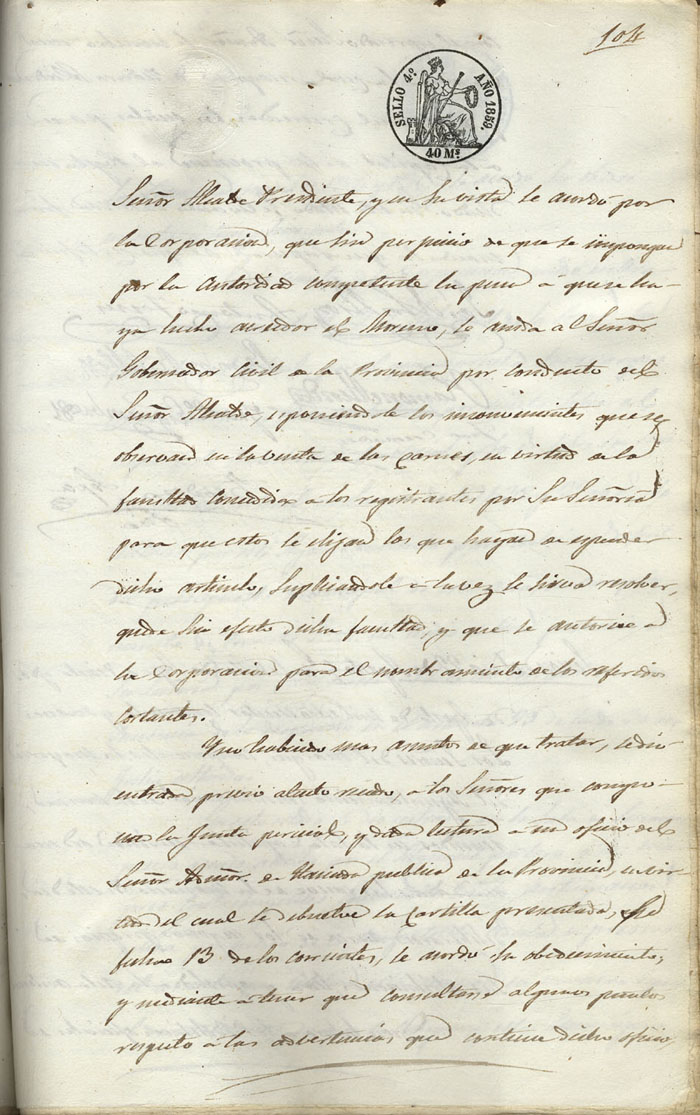 104
SELLO 4º AÑO 1859.
40 Ms
Señor Alcalde Presidente, y en su vista se acordó por
la Corporacion, que sin perjuicio de que se imponga
por la autoridad competente la pena á que se ha-
ya hecho acreedor el Moreno, se acuda al Señor
Gobernador Civil de la Provincia por conducto del
Señor Alcalde, esponiendole los inconvenientes que se
observan en la venta de las carnes, en virtud de la
facultad concedida a los registrantes por Su Señoria
para que estos se elijan los que hayan de espender
dicho articulo, suplicandole a la vez se sirva resolver,
quede sin efecto dicha facultad, y que se autorice a
la Corporacion para el nombramiento de los referidos
cortantes.
Y no habiendo mas asuntos de que tratar, se dio
entrada previo aludo, a los Señores que compo-
nen la Junta pericial, y dada lectura a un oficio del
Señor Admor. de Hacienda publica de la Provincia, en vir-
tud del cual se debuelve la Cartilla presentada,
fecha 13 de los corrientes, se acordó su obedecimiento,
y mediante a tener que consultarse algunos puntos
respeto a las advertencias que contiene dicho oficio,